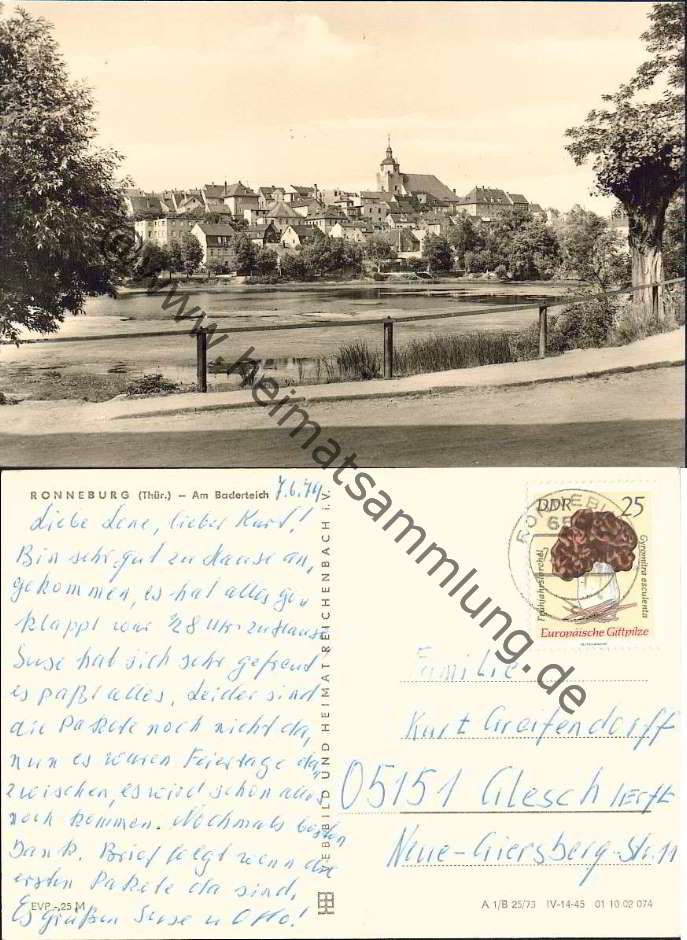 www.Heimatsammlung.de
RONNEBURG (Thür.) – Am Baderteich
7.6.74
Liebe Lene, lieber Kurt!
Bin sehr gut zu Hause an,
gekommen, es hat alles ge,
klappt war ½8 Uhr zuhause
Suse hat sich sehr gefreut
es paßt alles, Leider sind
die Pakete noch nicht da,
nun es waren Feiertage da,
zwischen, es wird schon alles
noch kommen. Nochmals besten
Dank. Brief folgt wenn die
ersten Pakete da sind,
Es grüßen Suse u Otto!
EVP -,25 M
VEB BILD UND HEIMAT REICHENBACH i. V.
RONNEBURG
65
DDR 25
Frühjahrslorchel
Gyromitra esculenta
Europäische Giftpilze
Familie
Kurt Greifendorff
05151 Glesch /Erft
Neue-Giersberg-Str. 11
A 1/B 25/73 IV-14-45 01 10 02 074